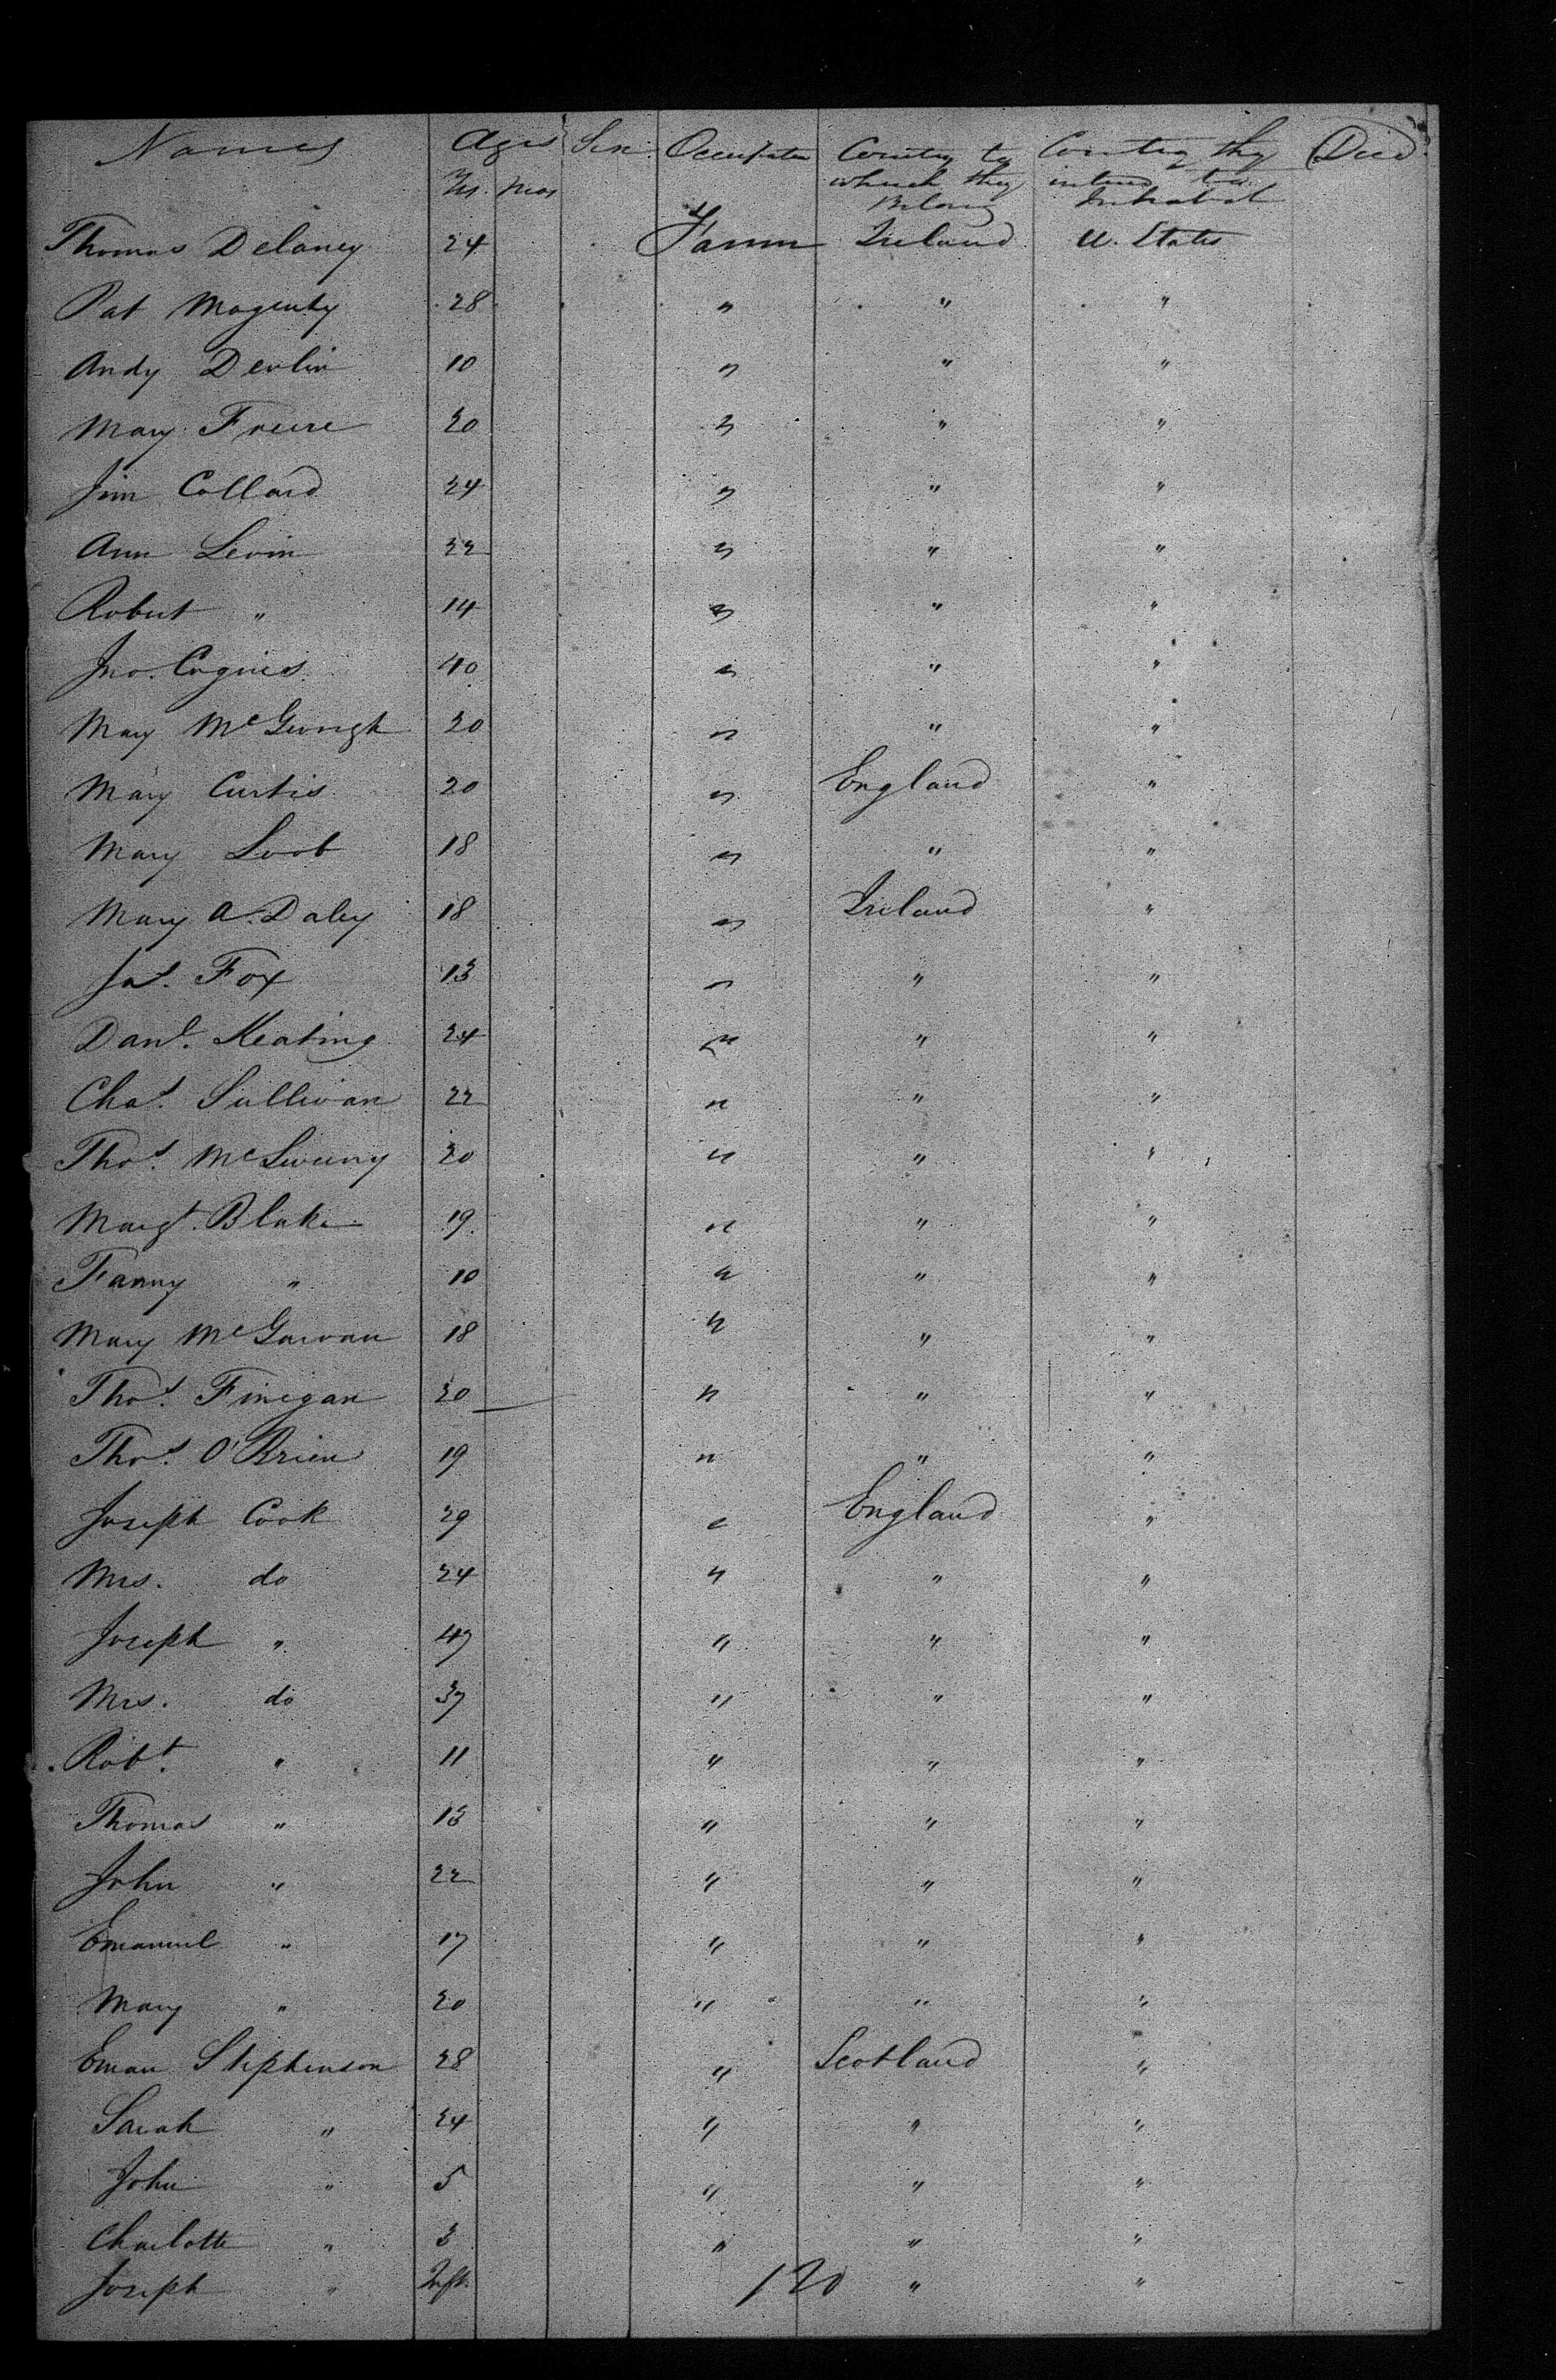 Names Ages Sex Occupation Country to which they Belong Country they intend to Inhabit Died
Yrs. Mos
Thomas Delaney 24 Farmer Ireland U. States
Pat Magenty 28 " " "
Andy Devlin 10 " " "
Mary Freere 20 " " "
Jim Collard 24 " " "
Ann Levin 22 " " "
Robert " 14 " " "
Jno. 40 " " "
Mary 20 " " "
Mary Curtis 20 " England "
Mary Loob 18 " " "
Mary A. Daley 18 " Ireland "
Jas. Fox 13 " " "
Danl. Keating 24 " " "
Chas. Sullivan 22 " " "
Thos. McSweeny 20 " " "
Margt. Blake 19 " " "
Fanny " 10 " " "
Mary McGarvan 18 " " "
Thos. Finegan 20 " " "
Thos. O'Brien 19 " " "
Joseph Cook 29 " England "
Mrs. do 24 " " "
Joseph " 47 " " "
Mrs. do 37 " " "
Robt. " 11 " " "
Thomas " 13 " " "
John " 22 " " "
Emanuel " 17 " " "
Mary " 20 " " "
Eman Stephenson 28 " Scotland "
Sarah " 24 " " "
John " 5 " " "
Charlotte " 3 " " "
Joseph " Inft. 120 " "